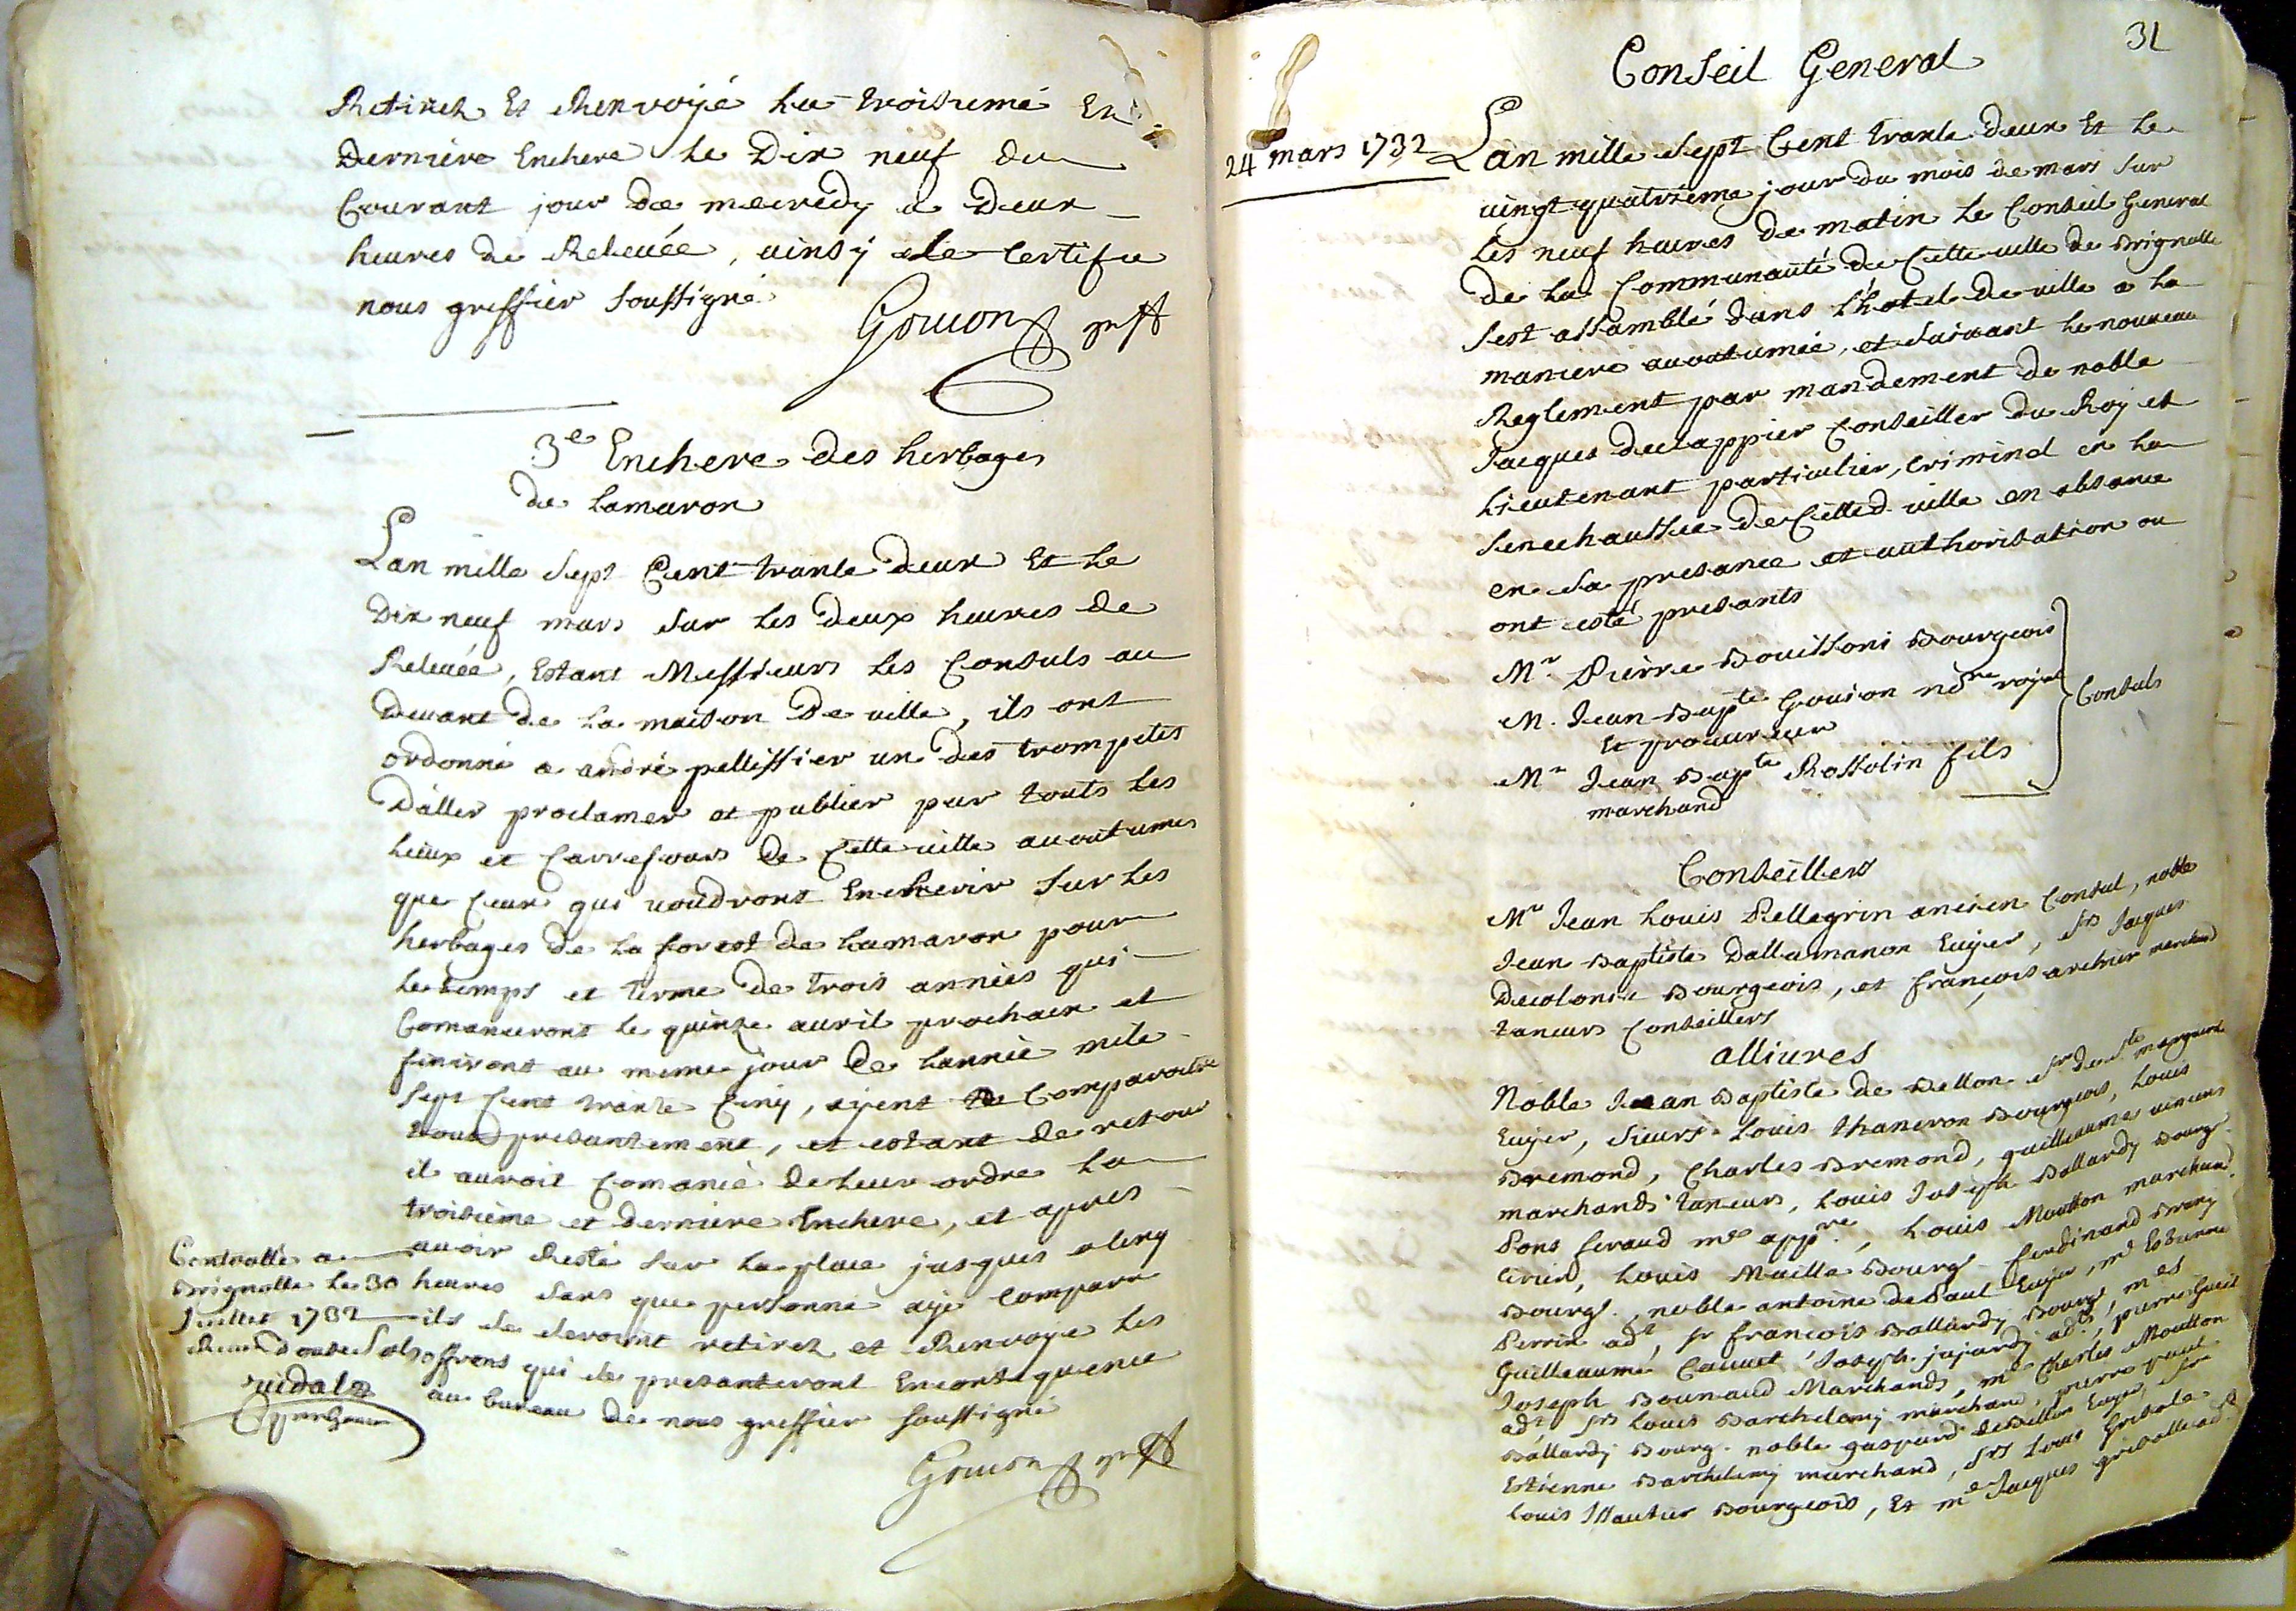 Retirer Et Renvoyé La troisieme Et
Derniere Enchere Le Dix neuf du
Courant jour de mecredy a deux
heures de Relevée, ainsy le certifie
nous greffier soussigné
Gouion greff
3e Enchere des herbages
de Lamaron
Lan mille sept Cent trante deux Et Le
Dix neuf mars sur les deux heures de
Relevée, Estant Messieurs Les Consuls au
devant de la maison De ville, ils ont
ordonné a andré pellissier un des trompetes
Daller proclamer et publier par touts les
lieux et Carrefours de Cette ville acoutumes
que Ceux qui voudront Encherir sur les
herbages de la forest de Lamaron pour
Le temps et terme de trois années qui
Comanceront le quinze avril prochain et
finiront au meme jour de lannée mile
sept Cent trante Cinq, ayent de Comparoitre
tout presantement, et estant de retour
il auroit Comancé de leur ordre La
troisième et derniere Enchere, et apres
avoir Resté sur la place jusques a cinq
heures sans que personne aye comparu
ils se seroint retirez et Renvoye les
offrens qui se presanteront En consequence
au bureau de nous greffier soussigné
Gouion greff
Controllé a
Brignolle le 30
Juillet 1732
Receu douze sols
vidal
31
Conseil General
24 mars 1732
Lan mille sept Cent trante deux Et Le
vingt quatrieme jour du mois de mars sur
les neuf heures de matin Le Conseil General
de la Communauté de Cette ville de Brignolle
sest assamblé dans L'hotel de ville a la
maniere acoutumée, et suivant le nouveau
Reglement par mandement de noble
Jacques declappier Conseiller du Roy et
Lieutenant particulier, Criminel en la
senechaussée de Cetted. ville en absance
en sa presance et authorisation ou
ont esté presants
Mr. Pierre Bouissoni Bourgeois
M. Jean Bapte Gouion nore royal
Et procureur
Mr Jean Bapte Rossolin fils
marchand
Consuls
Conseillers
Mr Jean Louis Pellegrin ancien Consul, noble
Jean Baptiste Dallamanon Ecuyer, Srs Jacques
Decolonia Bourgeois, et françois archier marchand
taneurs Conseillers
alliures
Noble Jean Baptiste de Bellon Sr de Ste marguerite
Ecuyer, Sieurs Louis thaneron Bourgeois, Louis
Bremond, Charles Bremond, guilleaume
marchands taneurs, Louis Joseph Ballardy Bourgs.
Pons feraud me appre, Louis Moutton marchand
Cirier, Louis Maille Bourgs. ferdinand Brany
Bourgs., noble antoine de Paul Ecuyer, me Estienne
Perrin adt, sr françois Ballardy Bourgs, mes
Guilleaume Cauvet Joseph jujardy adts, pierre Gueit
Joseph Bounaud Marchands, me Charles Moutton
adt srs Louis Barthelemy marchand, pierre paul
Ballardy Bourg. noble gaspard de Bellon Ecuyer, Sr
Estienne Barthelemy marchand, Srs Louis Grisolle
Louis Mautier Bourgeois, Et me Jacques grisolle adt